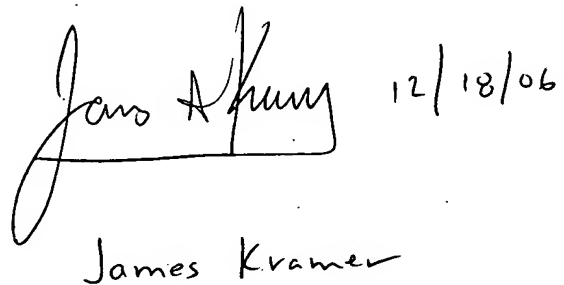 James A Kramer 12/18/06
James Kramer